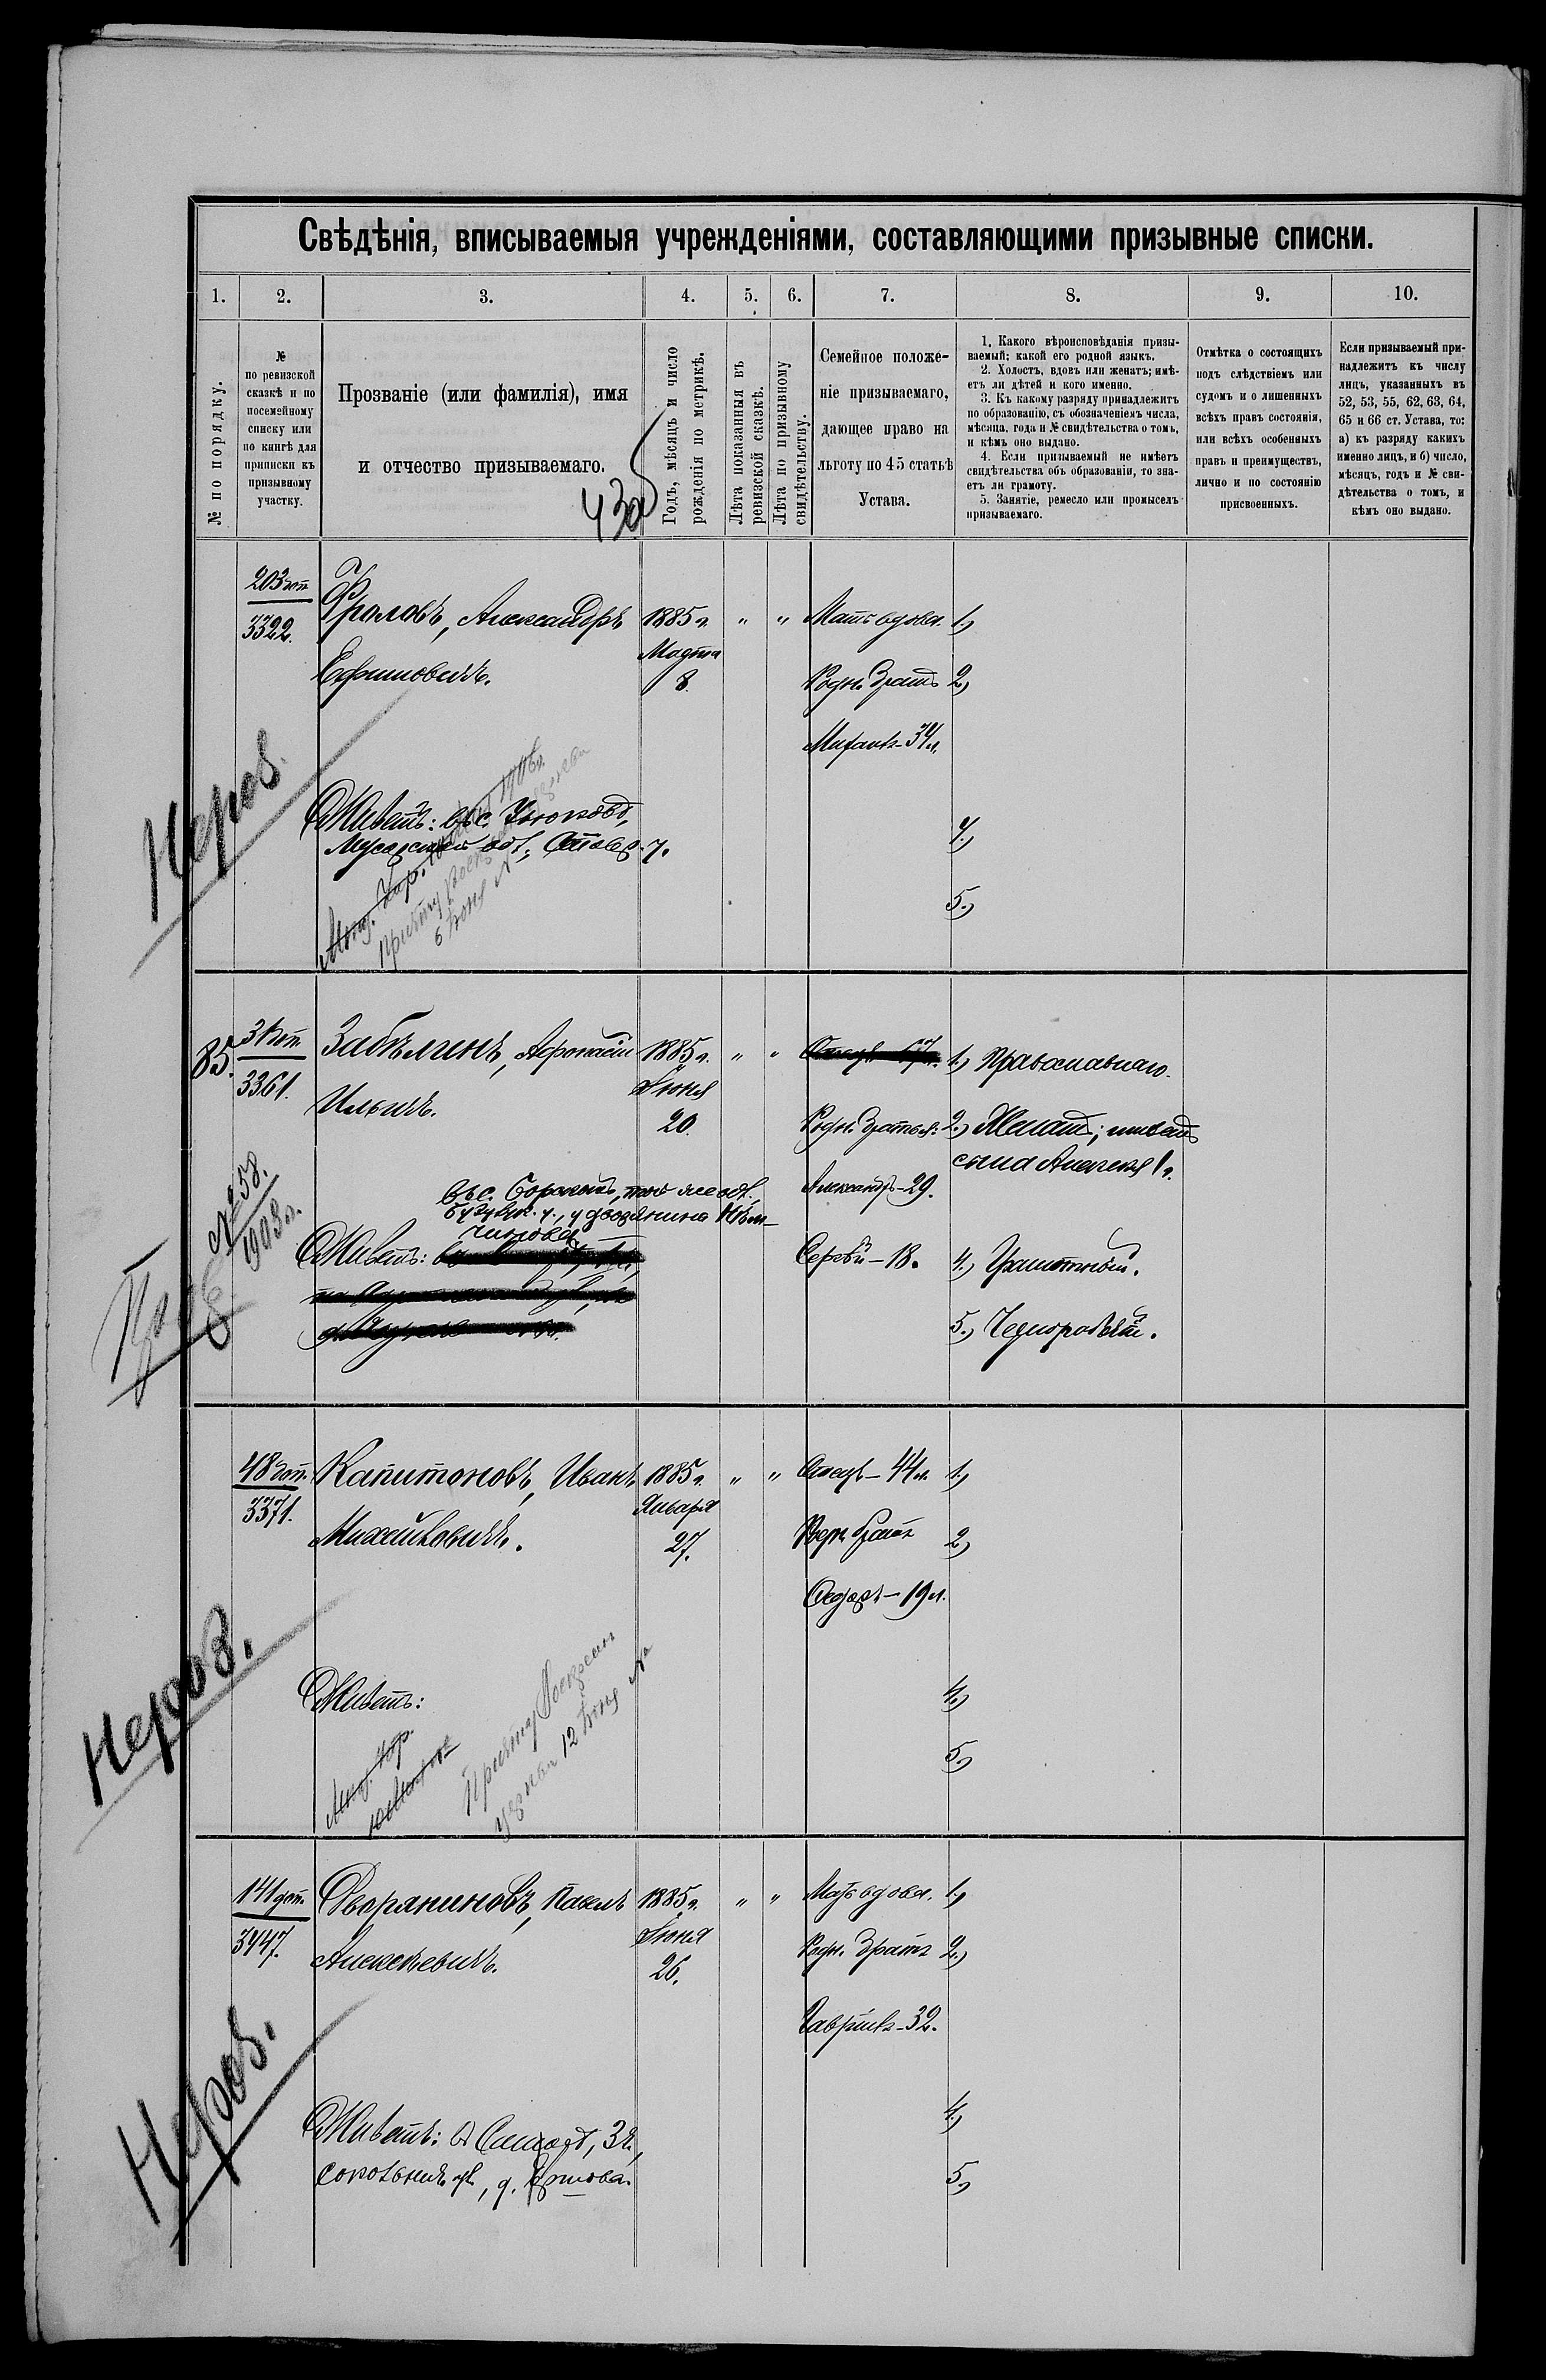 Свѣдѣнія, вписываемыя учрежденіями, составляющими призывные списки.
1. 2. 3. 4. 5. 6. 7. 8. 9. 10.
№ по порядку.
№
по ревизской
сказкѣ и по
посемейному
списку или
по книгѣ для
приписки къ
призывному
участку.
Прозваніе (или фамилія), имя
и отчество призываемаго.
Годъ, мѣсяцъ и число
рожденія по метрикѣ.
Лѣта показанныя въ
ревизской сказкѣ.
Лѣта по призывному
свидѣтельству.
Семейное положе-
ніе призываемаго,
дающее право на
льготу по 45 статьѣ
Устава.
1. Какого вѣроисповѣданія призы-
ваемый; какой его родной языкъ.
2. Холостъ, вдовъ или женатъ; имѣ-
етъ ли дѣтей и кого именно.
3. Къ какому разряду принадлежитъ
по образованію, съ обозначеніемъ числа,
мѣсяца, года и № свидѣтельства о томъ,
и кѣмъ оно выдано.
4. Если призываемый не имѣетъ
свидѣтельства объ образованіи, то зна-
етъ ли грамоту.
5. Занятіе, ремесло или промыселъ
призываемаго.
Отмѣтка о состоящихъ
подъ слѣдствіемъ или
судомъ и о лишенныхъ
всѣхъ правъ состоянія,
или всѣхъ особенныхъ
правъ и преимуществъ,
лично и по состоянію
присвоенныхъ.
Если призываемый при-
надлежитъ къ числу
лицъ, указанныхъ въ
52, 53, 55, 62, 63, 64,
65 и 66 ст. Устава, то:
а) къ разряду какихъ
именно лицъ, и б) число,
мѣсяцъ, годъ и № сви-
дѣтельства о томъ, и
кѣмъ оно выдано.
203
3322.
Фроловъ, Александръ
Ефимовичъ.
1885 г.
Марта
8.
" "
Мать вдова.
Родн. братъ
34 л.
1.)
2.)
4.)
5.)
Живетъ: въ с.
Нероз.
85.
31
3361.
Забѣлинъ, Афонасій
Ильичъ.
1885 г.
Іюня
20.
" "
Родн. братья:
Александръ - 29.
Сергѣй - 18.
1.) Православнаго.
2.) Женатъ; имѣетъ
сына Алексея 1 г.
4.) Грамотный.
5.) Чернорабочій.
№ 58.
1903 г.
въ с. Борскомъ, той же вол.,
Бузулук. у., у дворянина
Живетъ:
48
3371.
Капитоновъ, Иванъ
Михайловичъ.
1885 г.
Января
27.
" "
Отецъ - 44 л.
Родн. братъ
Федоръ - 19 л.
1.)
2.)
4.)
5.)
Живетъ:
Нероз.
141
3447.
Дворяниновъ, Павелъ
Алексѣевичъ.
1885 г.
Іюня
26.
" "
Мать вдова.
Родн. братъ
Гавріилъ - 32.
1.)
2.)
4.)
5.)
Живетъ: въ
Нероз.